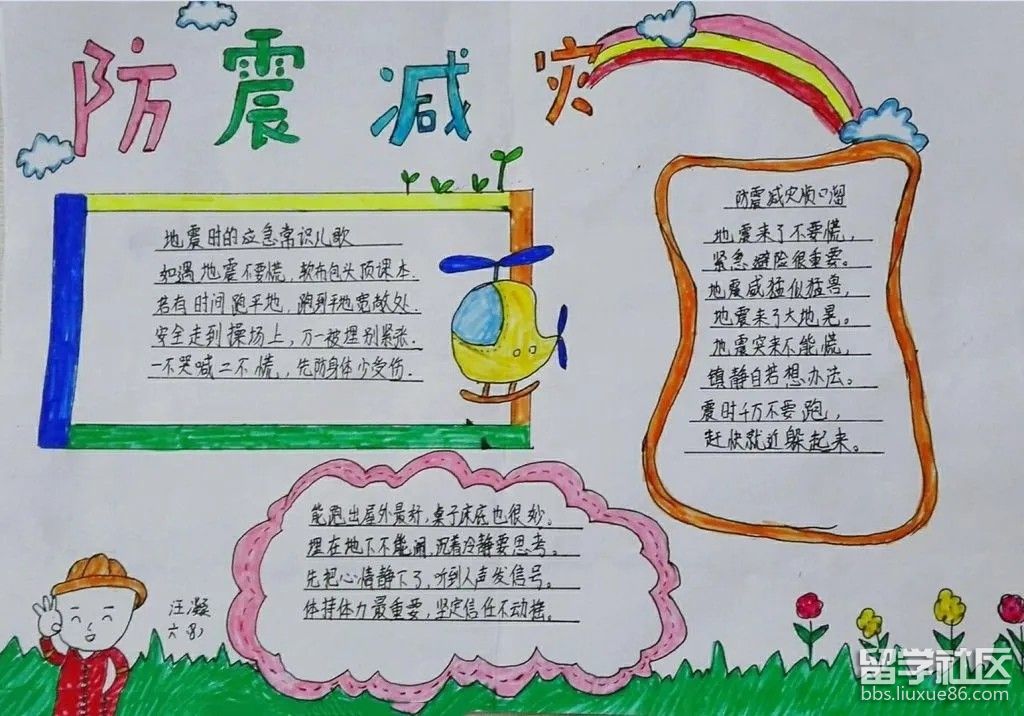 防震减灾
地震时的应急常识儿歌
如遇地震不要慌，软布包头顶课本.
若有时间跑平地，跑到平地宽敞处.
安全走到操场上，万一被埋别紧张.
一不哭喊二不慌，先防身体少受伤.
防震减灾顺口溜
地震来了不要慌，
紧急避险很重要。
地震威猛似猛兽，
地震来了大地晃。
地震突来不能慌，
镇静自若想办法。
震时千万不要跑，
赶快就近躲起来。
能跑出屋外最好，桌子床底也很妙。
埋在地下不能闹，沉着冷静要思考。
先把心情静下了，听到人声发信号。
体持体力最重要，坚定信任不动摇。
汪凝
六
留学社区
bbs.liuxue86.com